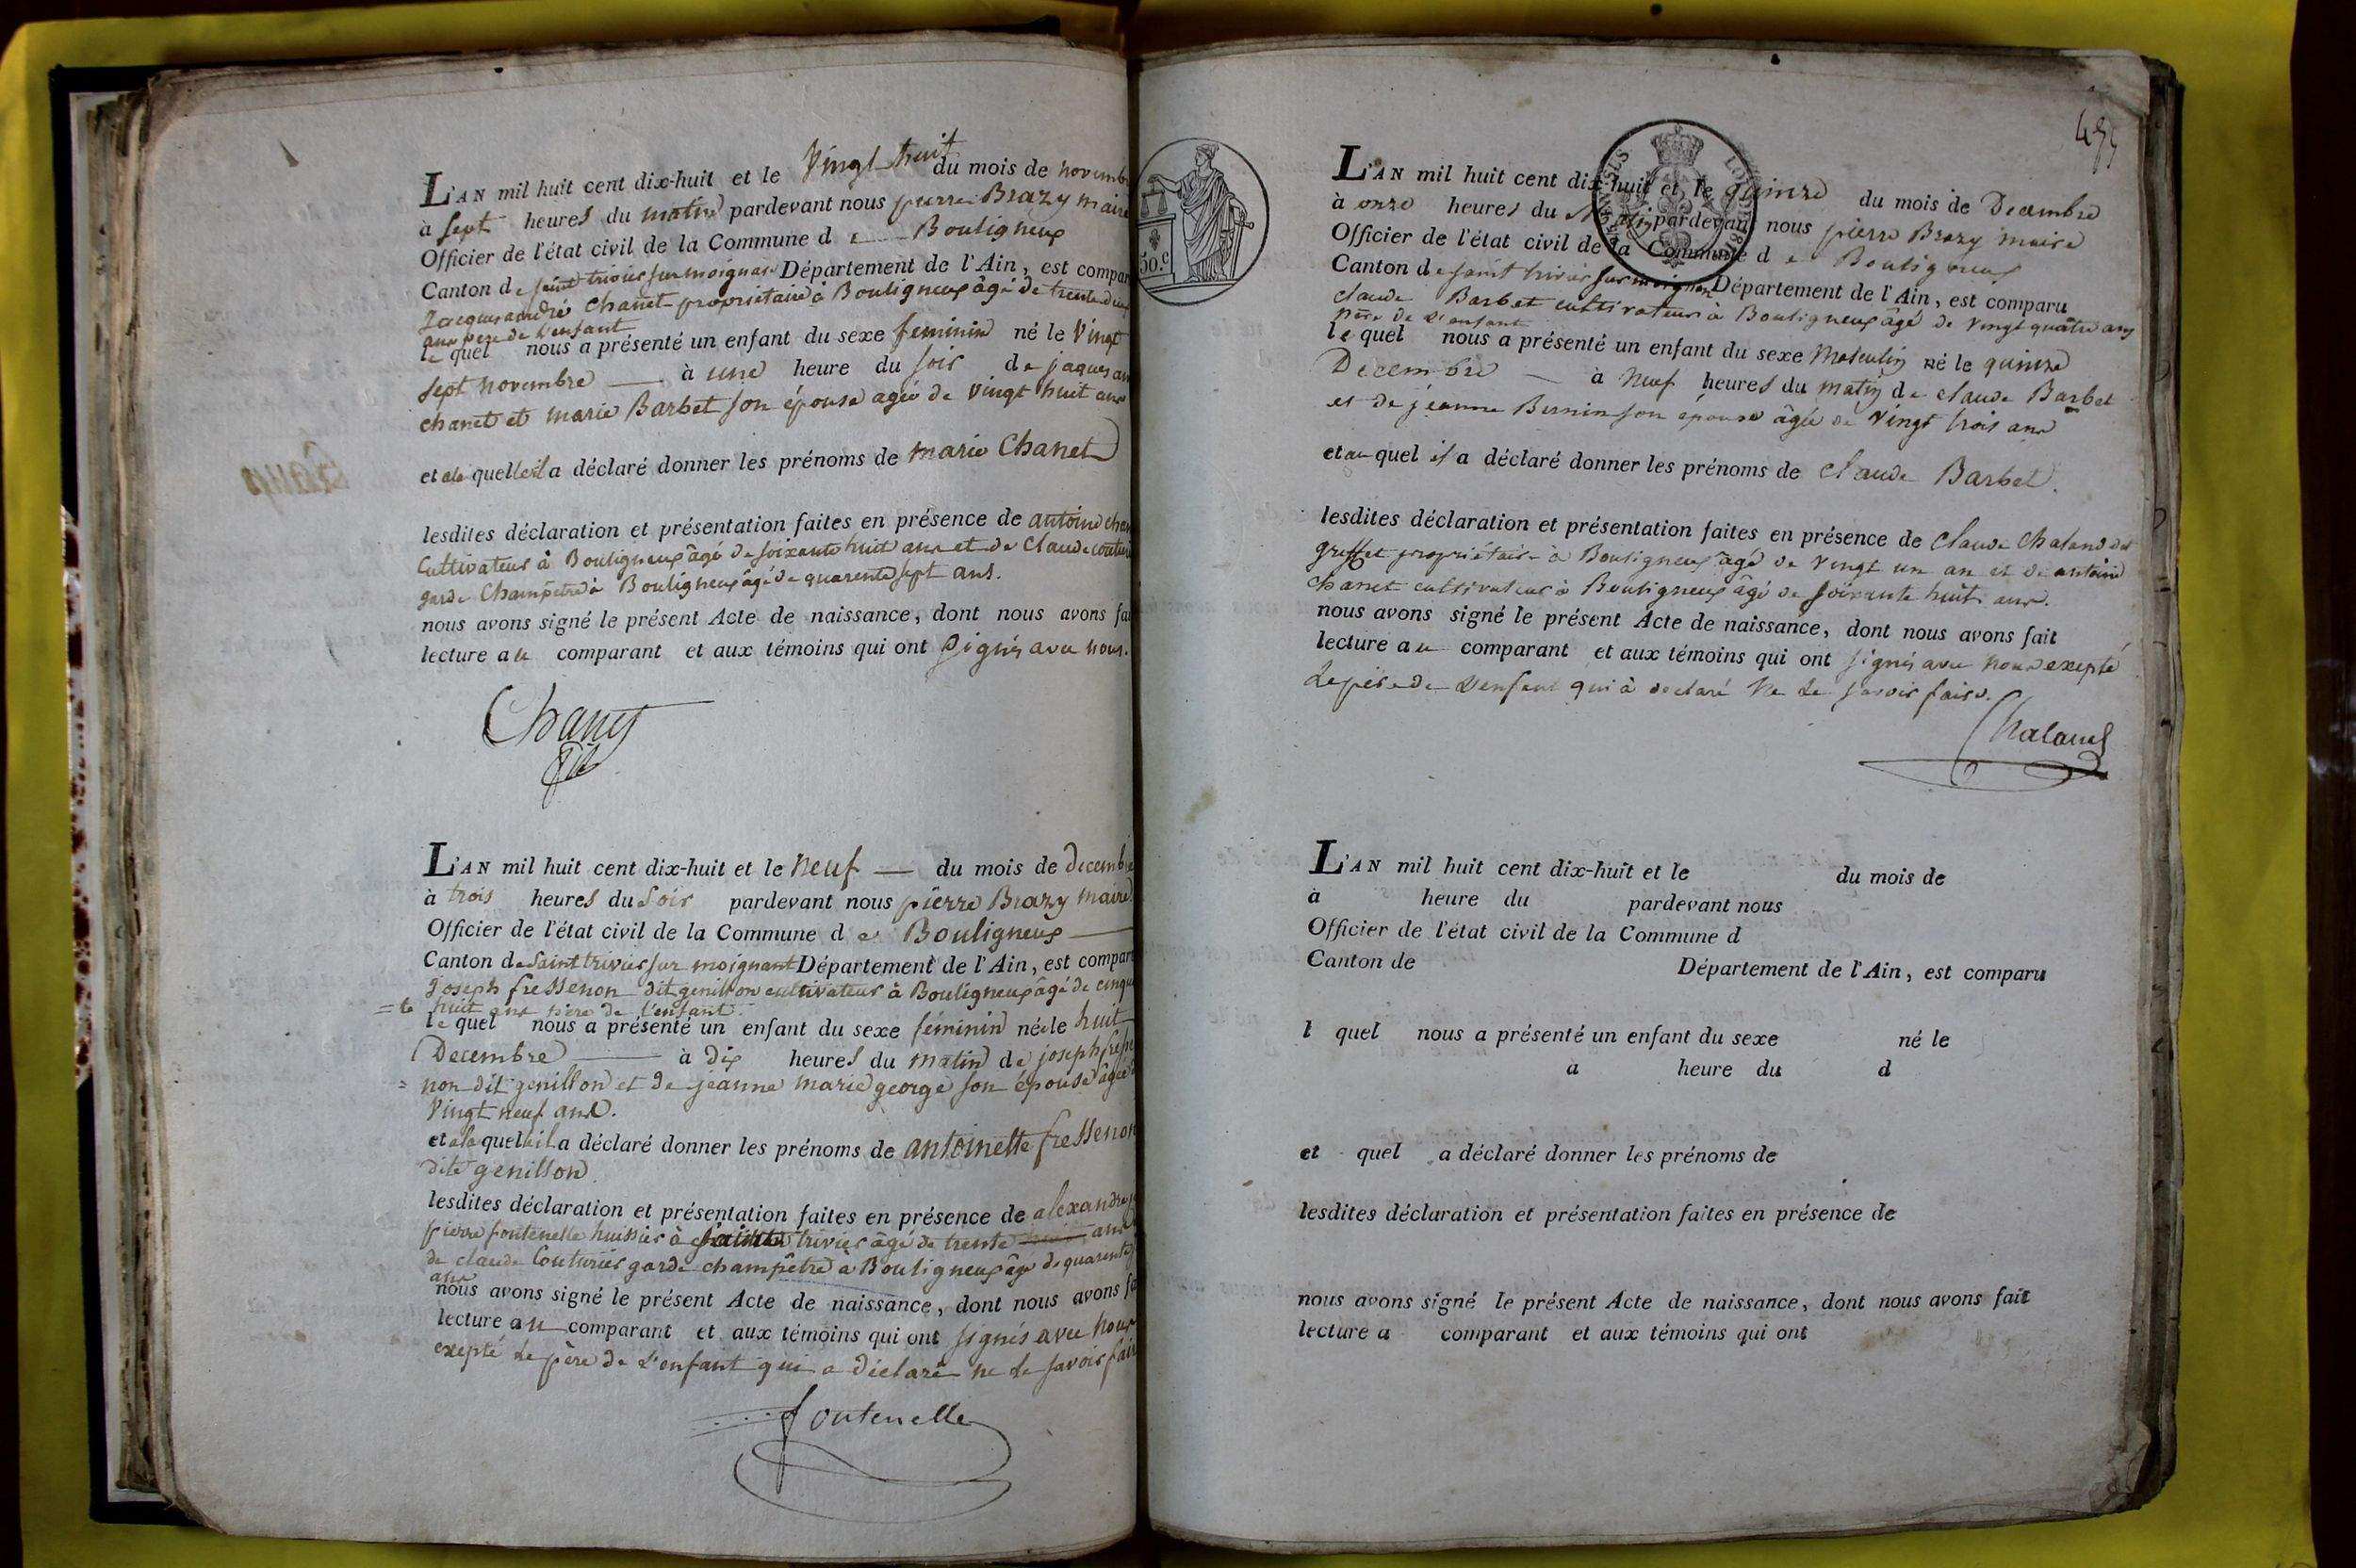 L'AN mil huit cent dix-huit et le Vingt huit du mois de novemb
à sept heures du matin pardevant nous pierre Brazy maire
Officier de l'état civil de la Commune de Bouligneux
Canton de saint trivier sur moignan Département de l'Ain, est compar
Jacques andré Chanet propriétaire à Bouligneux âgé de trente deux
ans père de l'enfant
le quel nous a présenté un enfant du sexe feminin né le Vingt
sept novembre — à une heure du soir de jaques an
chanet et marie Barbet son épouse agée de Vingt huit ans
et ala quelle il a déclaré donner les prénoms de marie Chanet
lesdites déclaration et présentation faites en présence de antoine chan
Cultivateur à Bouligneux âgé de soixante huit ans et de Claude couturi
garde Champêtre à Bouligneux âgé de quarente sept ans.
nous avons signé le présent Acte de naissance, dont nous avons fai
lecture au comparant et aux témoins qui ont signés avec nous.
Chanet
fils
L'AN mil huit cent dix-huit et le neuf — du mois de decembre
à trois heures du soir pardevant nous pierre Brazy maire
Officier de l'état civil de la Commune de Bouligneux —
Canton de Saint trivier sur moignant Département de l'Ain, est compar
Joseph fressenon dit genillon cultivateur à Bouligneux âgé de cinqu
=te huit ans père de l'enfant
le quel nous a présenté un enfant du sexe féminin née le huit
Decembre — à dix heures du matin de joseph fresse
= non dit genillon et de jeanne marie george son épouse âgée
Vingt neuf ans.
et ala quelle il a déclaré donner les prénoms de antoinette fressenon
dite genillon.
lesdites déclaration et présentation faites en présence de alexandre
pierre fontenelle huissier à saint trivier âgé de trente ans
de claude Couturier garde champêtre a Bouligneux âgé de quarente
ans
nous avons signé le présent Acte de naissance, dont nous avons fa
lecture au comparant et aux témoins qui ont signés avec nous
exepté le père de l'enfant qui a déclaré ne le savoir fair
fontenelle
50.c
495
L'AN mil huit cent dix-huit et le quinze du mois de Decembre
à onze heures du Matin pardevant nous pierre Brazy maire
Officier de l'état civil de la Commune de Bouligneux
Canton de saint trivier sur moignan Département de l'Ain, est comparu
claude Barbet cultivateur à Bouligneux âgé de vingt quatre ans
père de l'enfant
le quel nous a présenté un enfant du sexe Masculin né le quinze
Decembre — à Neuf heures du matin de claude Barbet
et de jeanne Bernin son épouse âgée de Vingt trois ans
et au quel il a déclaré donner les prénoms de claude Barbet.
lesdites déclaration et présentation faites en présence de Claude Chaland dit
greffet propriétaire à Bouligneux âgé de vingt un an et de antoine
chanet cultivateur à Bouligneux âgé de soixante huit ans.
nous avons signé le présent Acte de naissance, dont nous avons fait
lecture au comparant et aux témoins qui ont signés avec nous exepté
le père de l'enfant qui à déclaré ne le savoir faire.
Chaland
L'AN mil huit cent dix-huit et le du mois de
à heure du pardevant nous
Officier de l'état civil de la Commune d
Canton de Département de l'Ain, est comparu
l quel nous a présenté un enfant du sexe né le
a heure du d
et quel a déclaré donner les prénoms de
lesdites déclaration et présentation faites en présence de
nous avons signé le présent Acte de naissance, dont nous avons fait
lecture a comparant et aux témoins qui ont